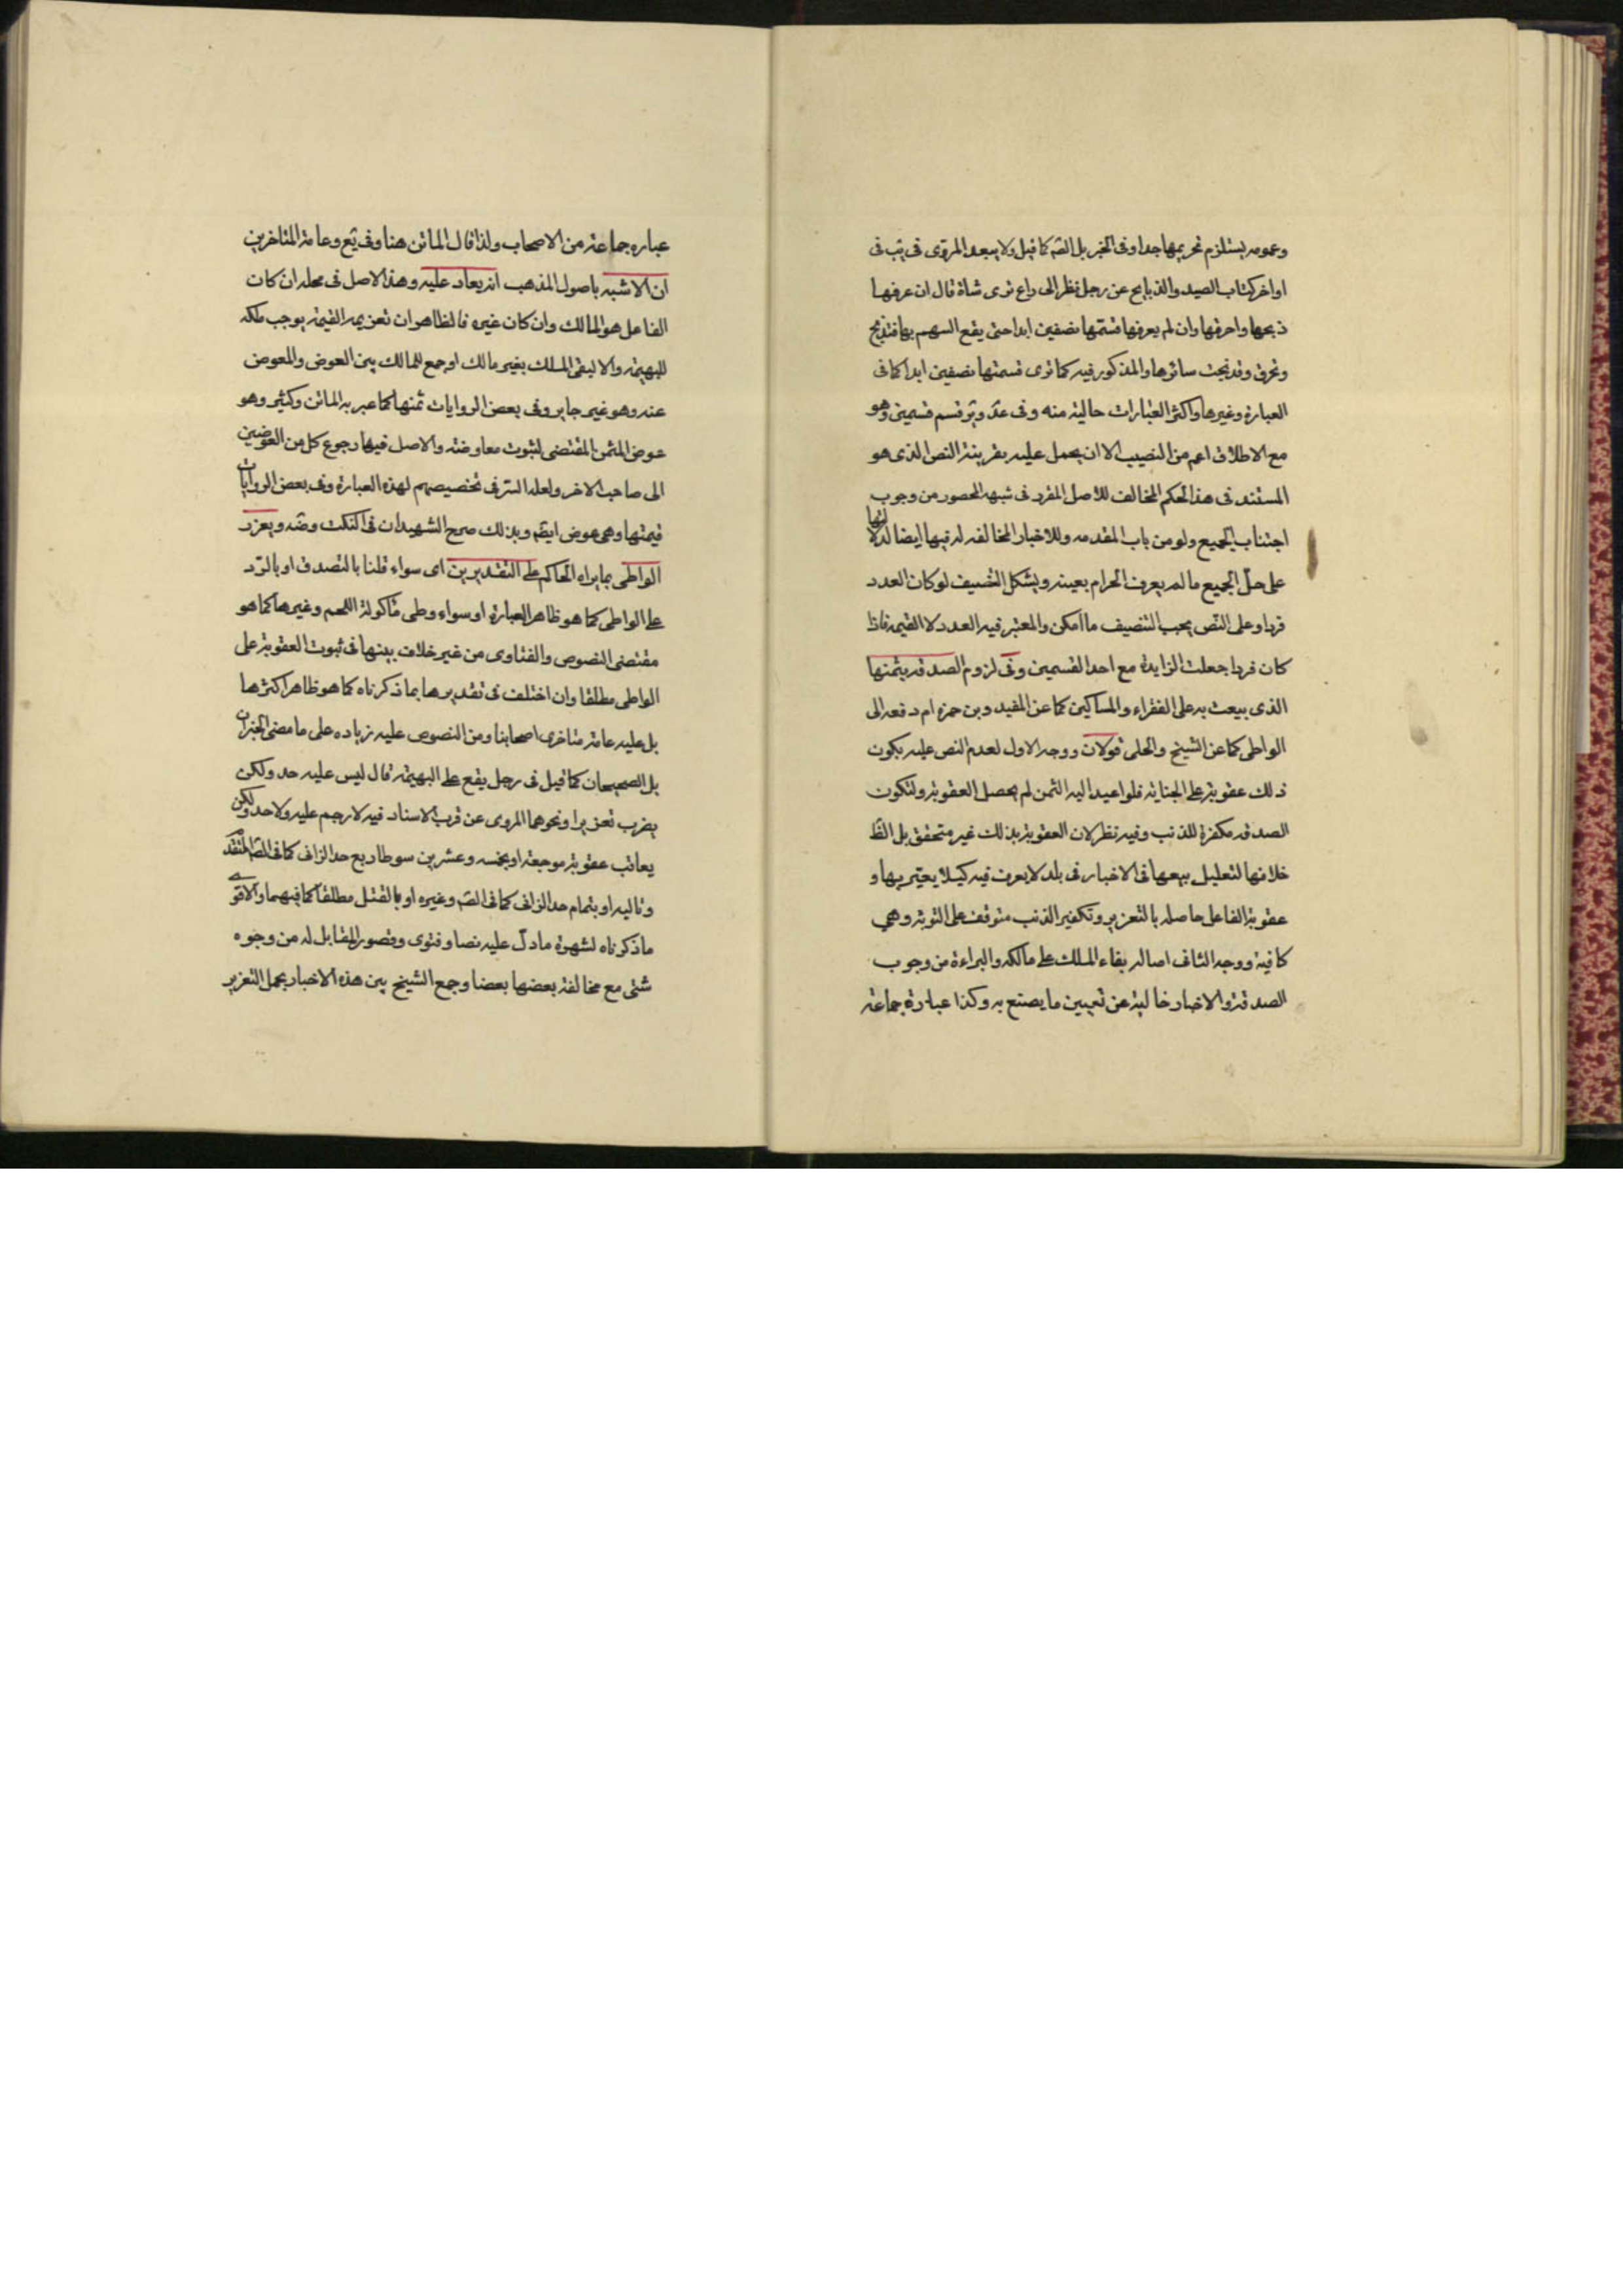 وعمومه يستلزم تحريمها جدا وفى الخبر بل الصّ كما قيل ولا يبعد المروّى فى يب فى
اواخر كتاب الصيد والذبايح عن رجل نظر الى راع نزى شاة قال ان عرفها
ذبحها واحرقها وان لم يعرفها قسّمها نصفين ابدا حتى يقع السهم بها فتذبح
وتحرق وقد نجت سائرها والمذكور فيه كما ترى قسمتها نصفين ابدا كما فى
العبارة وغيرها واكثر العبارات خالية منه وفى عد وير قسم قسمين وهو
مع الاطلاق اعم من التنصيف الا ان يحمل عليه بقرينة النص الذى هو
المستند فى هذا الحكم المخالف للاصل المقرر فى شبهه المحصور من وجوب
اجتناب الجميع ولو من باب المقدمه وللاخبار المخالفه له فيها ايضا لدلالتها
على حلّ الجميع ما لم يعرف الحرام بعينه ويشكل التنصيف لو كان العدد
فردا وعلى النّص يجب التنصيف ما امكن والمعتبر فيه العدد لا القيمه فاذا
كان فردا جعلت الزايدة مع احد القسمين وفى لزوم الصدقه بثمنها
الذى بيعت به على الفقراء والمساكين كما عن المفيد وبن حمزه ام دفعه الى
الواطى كما عن الشيخ والحلى قولان ووجه الاول لعدم النص عليه بكون
ذلك عقوبة على الجناية فلو اعيد اليه الثمن لم يحصل العقوبة ولتكون
الصدقه مكفرة للذنب وفيه نظر لان العقوبة بذلك غير متحقق بل الظ
خلافها لتعليل بيعها فى الاخبار فى بلد لا يعرف فيه كيلا يعيّر بها و
عقوبة الفاعل حاصله بالتعزير وتكفير الذنب متوقف على التوبة وهي
كافية ووجه الثانى اصاله بقاء الملك على مالكه والبراءة من وجوب
الصدقة والاخبار خالية عن تعيين ما يصنع به وكذا عبارة جماعة
عباره جماعة من الاصحاب ولذا قال الماتن هنا وفى يع وعامة المتاخرين
ان الاشبه باصول المذهب انه يعاد عليه وهذا الاصل فى محله ان كان
الفاعل هو المالك وان كان غيره فالظاهر ان تغريمه القيمة يوجب ملكه
للبهيمة والا لبقى الملك بغير مالك او جمع للمالك بين العوض والمعوض
عنه وهو غير جايز وفى بعض الروايات ثمنها كما عبر به الماتن وكثير وهو
عوض المثمن المقتضى لثبوت معاوضته والاصل فيها رجوع كل من العوضين
الى صاحب الاخر ولعله السّر فى تخصيصهم لهذه العبارة وفى بعض الروايات
قيمتها وهى عوض ايضا وبذلك صرح الشهيدان فى النكت وضه ويعزر
الواطى بما يراه الحاكم على التقديرين اى سواء قلنا بالتصدق او بالرّد
على الواطى كما هو ظاهر العبارة او سواء وطى مأكولة اللحم وغيرها كما هو
مقتضى النصوص والفتاوى من غير خلاف بينها فى ثبوت العقوبة على
الواطى مطلقا وان اختلف فى تقديرها بما ذكرناه كما هو ظاهر اكثرها
بل عليه عامة متاخرى اصحابنا ومن النصوص عليه زياده على ما مضى الخبران
بل الصحيحان كما قيل فى رجل يقع على البهيمة قال ليس عليه حد ولكن
يضرب تعزيرا ونحوهما المروى عن قرب الاسناد فيه لا رجم عليه ولا حد ولكن
يعاقب عقوبة موجعة او بخمسه وعشرين سوطا ربع حد الزانى كما فى الصّ المتقدم
وتاليه او بتمام حد الزانى كما فى الصّ وغيره او بالقتل مطلقا كما فيهما والاقوى
ما ذكرناه لشهرة ما دلّ عليه نصا وفتوى وقصور المقابل له من وجوه
شتى مع مخالفة بعضها بعضا وجمع الشيخ بين هذه الاخبار بحمل التعزير